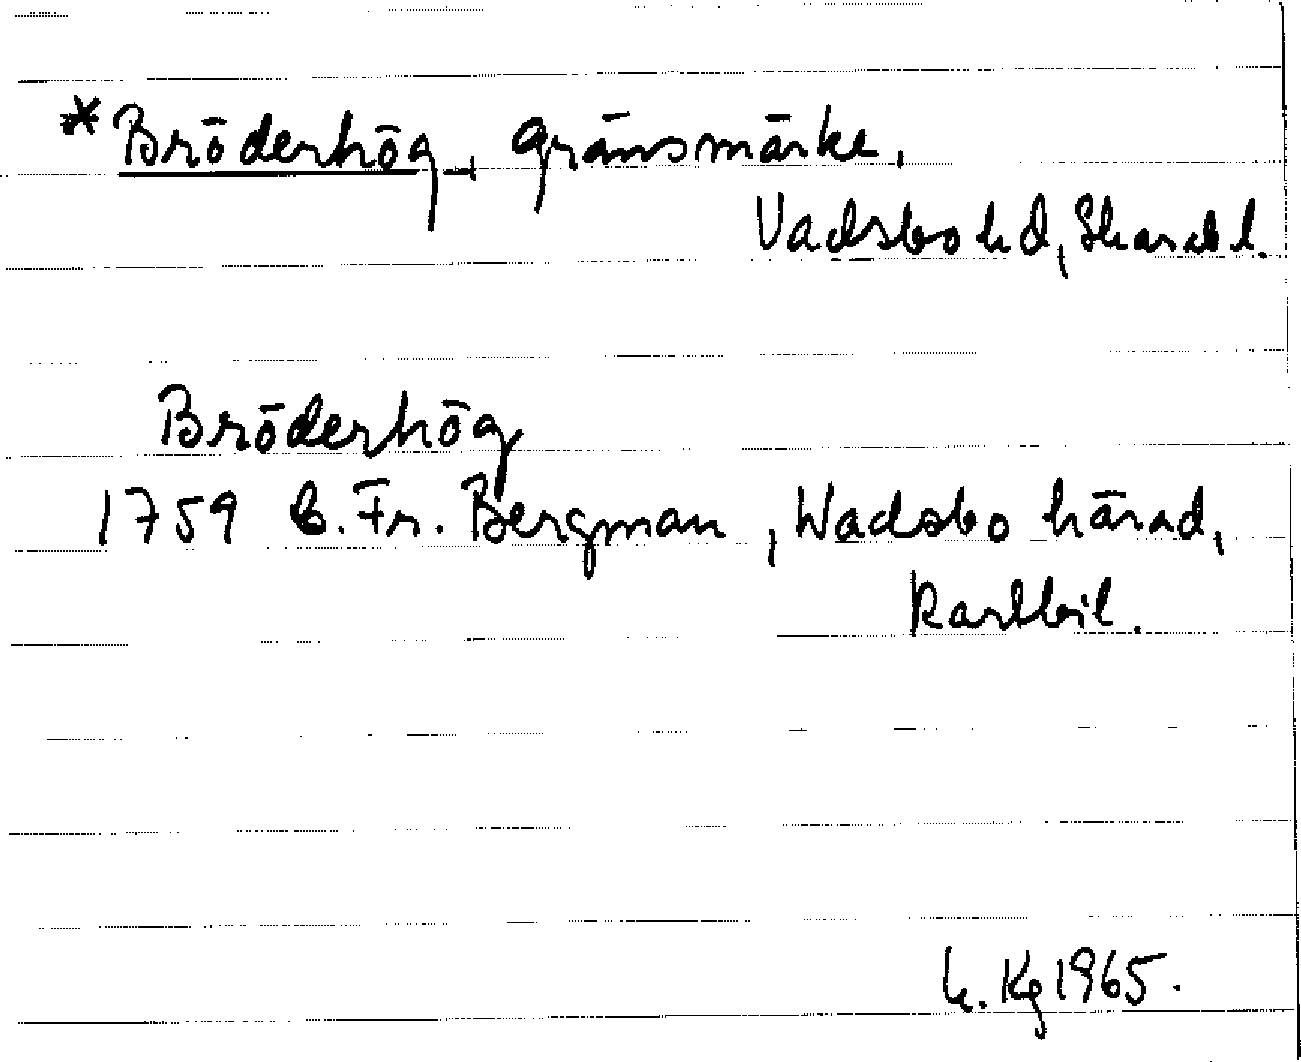 *Bröderhög, gränsmärke,
Vadsbo hd, Skarab l.
Bröderhög
1759 C. Fr. Bergman, Wadsbo härad,
Kartbil.
1965.